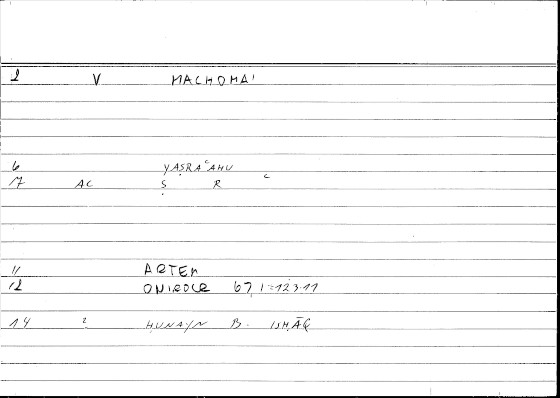 2 V MACHOMA'
6 YAṢRAʿAHU
17 AC Ṣ R ʿ
11 ARTEM
12 ONIROCR 67,1=123.11
14 2 ḤUNAYN B. ISḤĀQ